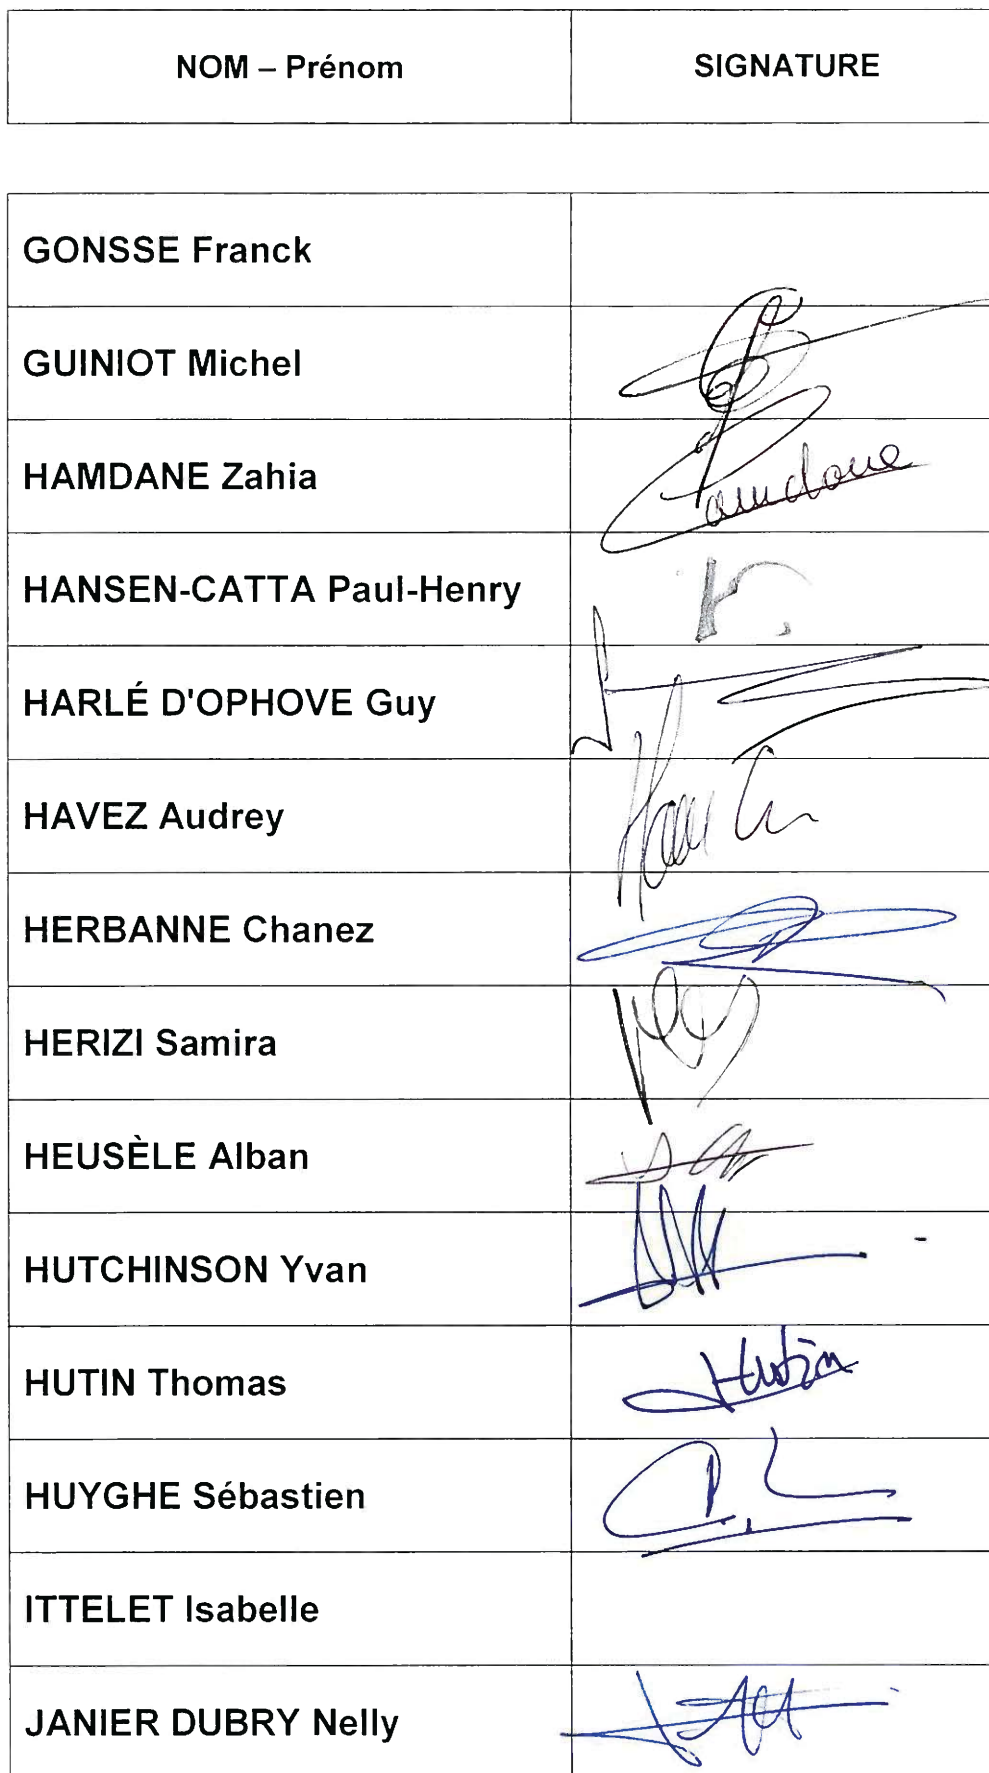 NOM – Prénom SIGNATURE
GONSSE Franck
GUINIOT Michel
HAMDANE Zahia
HANSEN-CATTA Paul-Henry
HARLÉ D'OPHOVE Guy
HAVEZ Audrey
HERBANNE Chanez
HERIZI Samira
HEUSÈLE Alban
HUTCHINSON Yvan
HUTIN Thomas Hutin
HUYGHE Sébastien
ITTELET Isabelle
JANIER DUBRY Nelly